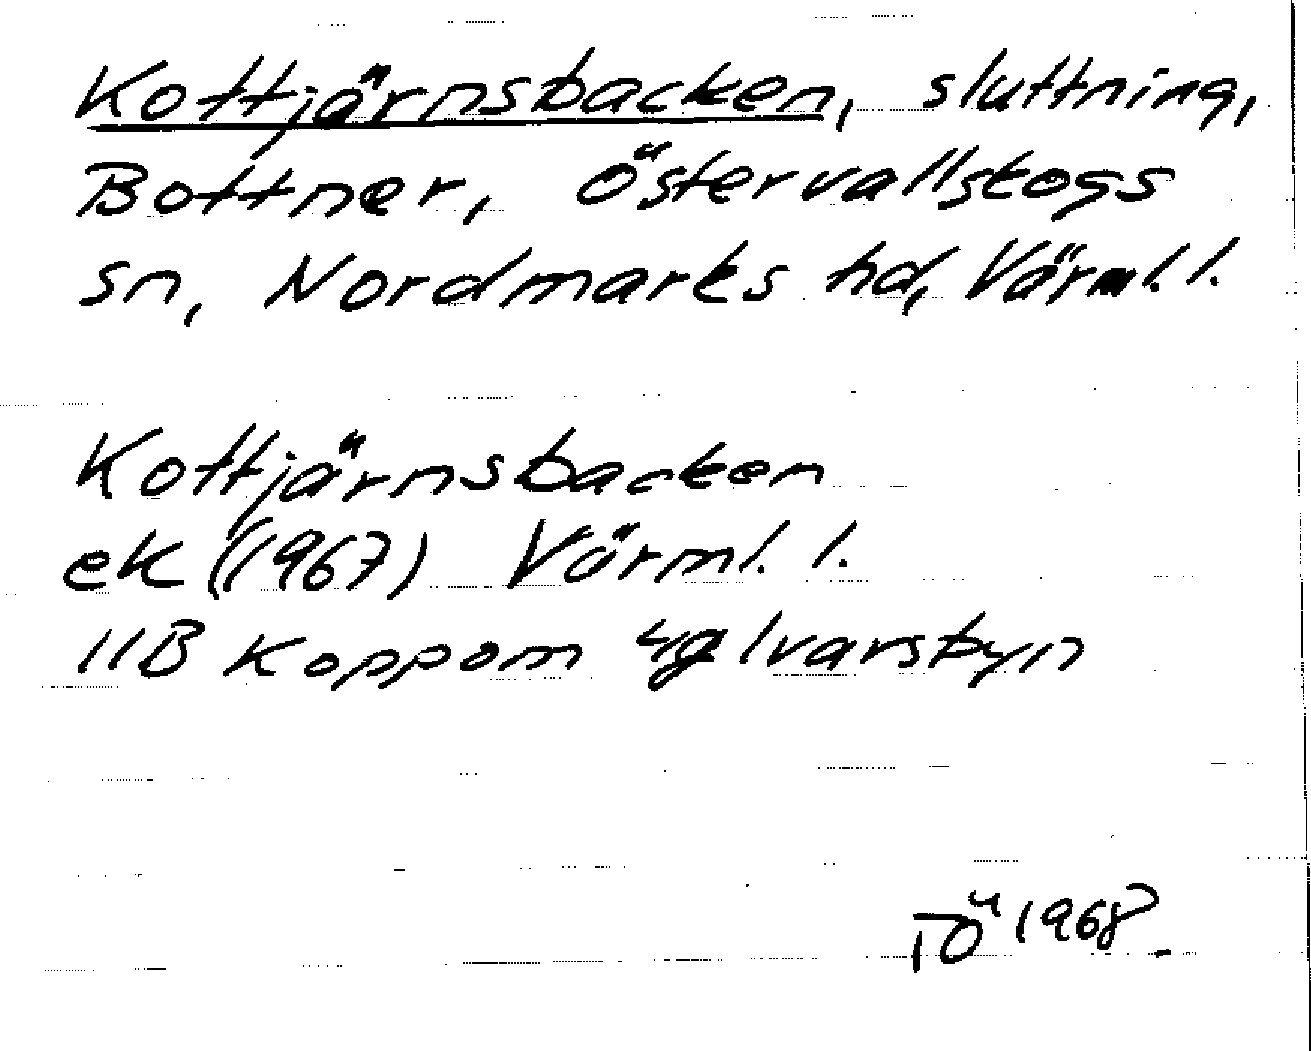 Kottjärnsbacken, sluttning,
Bottner, Östervallskogs
sn, Nordmarks hd, Värml. l.
Kottjärnsbacken
ek (1967) Värml. l.
11B Koppom 4g Ivarsbyn
TÖ 1968